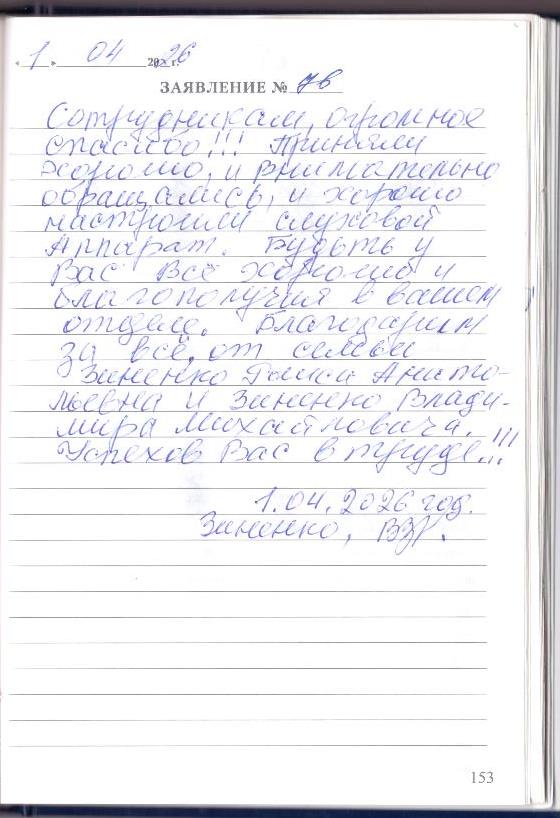 « 1 » 04 2026 г.
ЗАЯВЛЕНИЕ № 76
Сотрудникам, огромное
спасибо!!! Приняли
хорошо, и внимательно
обращались, и хорошо
настроили слуховой
Аппарат. Будьть у
Вас Всё хорошо и
благополучия в вашем
отделе. Благодарим
за всё, от семьи
Зиненко Раиса Анато-
льевна и Зиненко Влади-
мира Михайловича.
Успехов Вас в труде!!!
1.04.2026 год.
Зиненко, ВЗР.
153